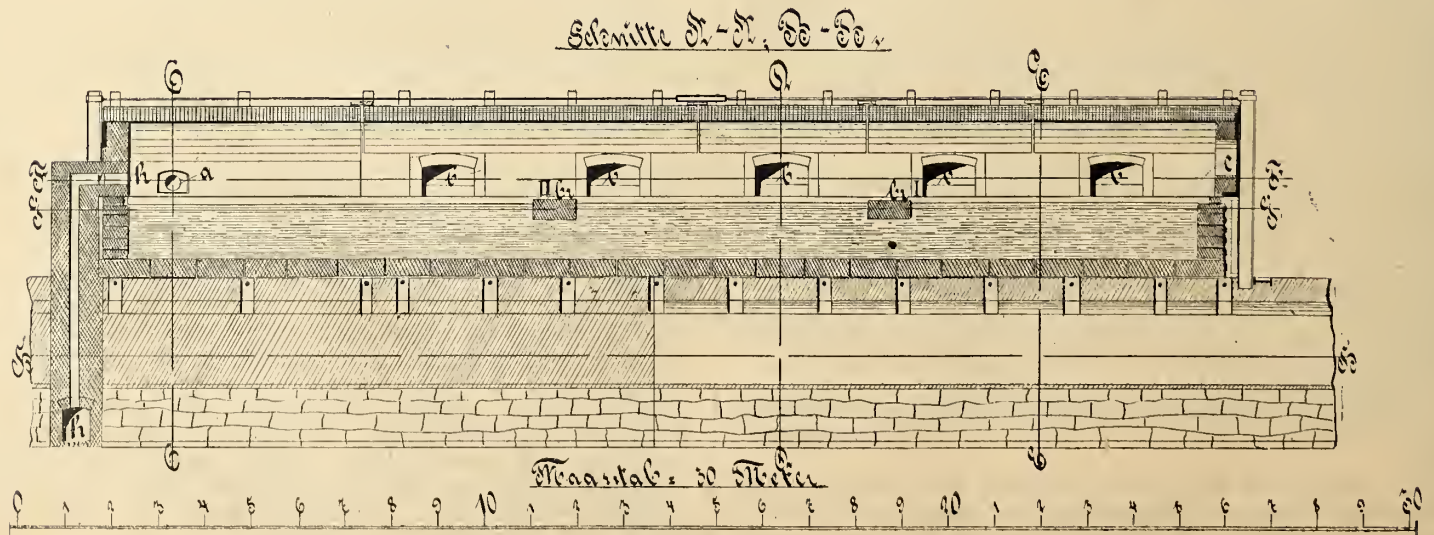 Schnitte A-A, B-B.
C D E
h a b b b b b c
II b₁ b₁ I
B B
h
C D E
Maasstab = 30 Meter
0 1 2 3 4 5 6 7 8 9 10 1 2 3 4 5 6 7 8 9 20 1 2 3 4 5 6 7 8 9 30